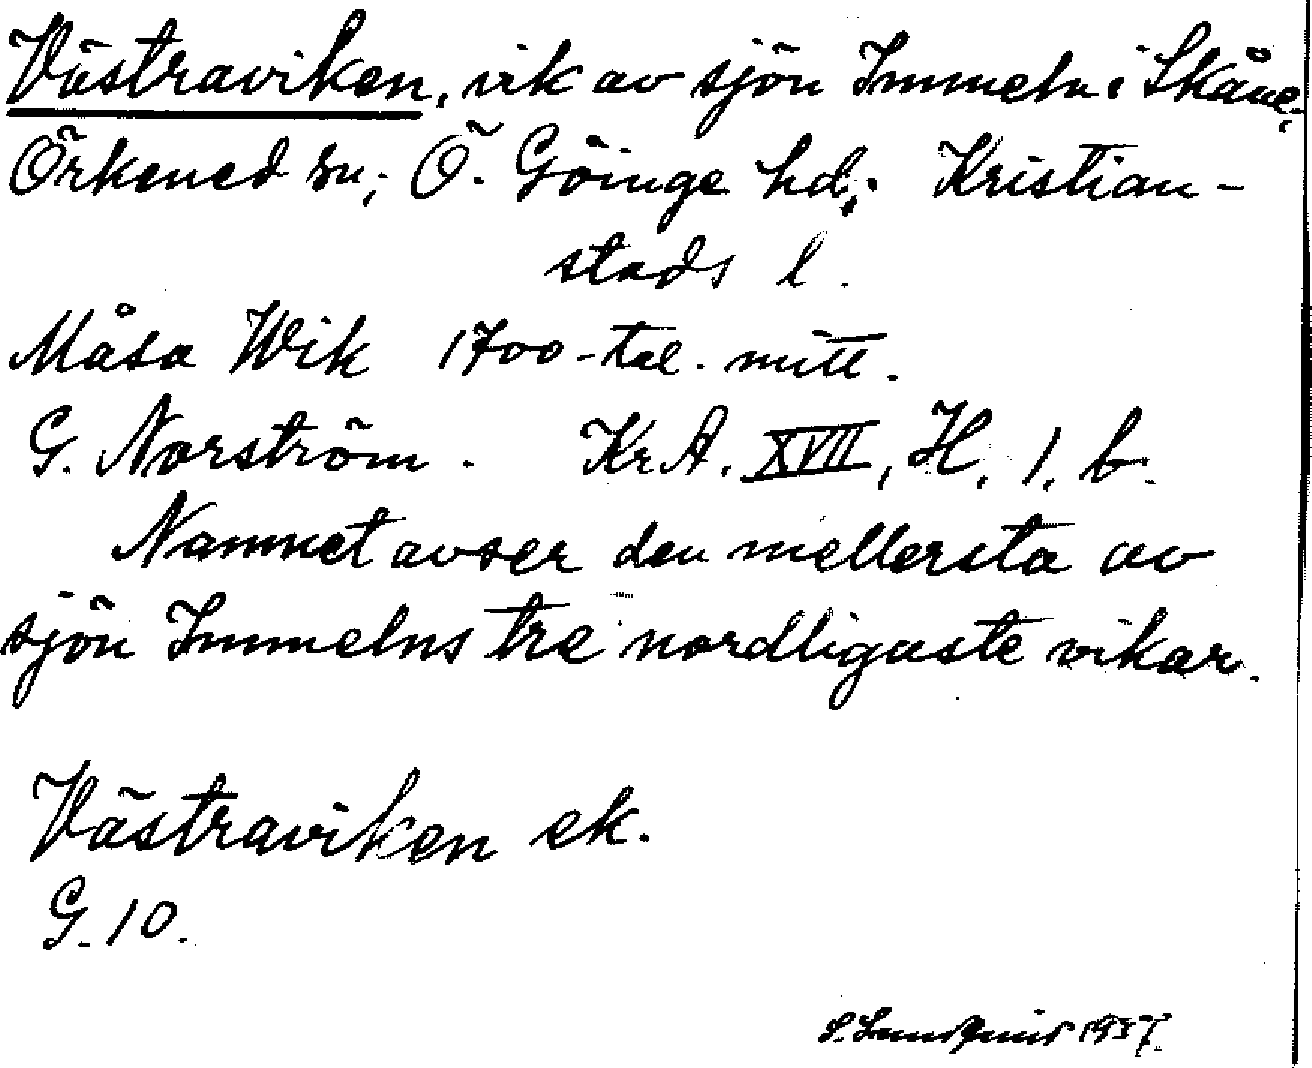 Västraviken, vik av sjön Immeln i Skåne.
Örkened sn; Ö. Göinge hd; Kristian-
stads l.
Måsa Wik 1700-tal. mitt.
G. Norström. Kr.A. XVII, H, 1, b.
Namnet avser den mellersta av
sjön Immelns tre nordligaste vikar.
Västraviken ek.
G. 10.
S. Lundquist 1937.